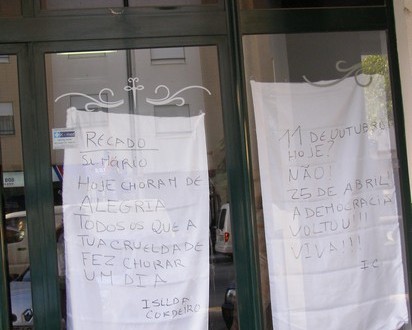 RECADO
SR MÁRIO
HOJE CHORAM DE
ALEGRIA
TODOS OS QUE A
TUA CRUELDADE
FEZ CHORAR
UM DIA
ISILDA
CORDEIRO
11 DE OUTUBRO
HOJE?
NÃO!
25 DE ABRIL
A DEMOCRACIA
VOLTOU!!!
VIVA!!!
IC